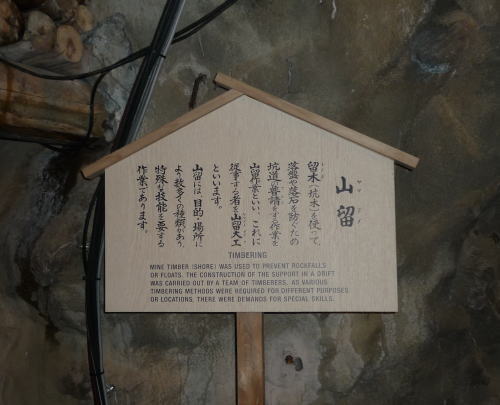 山留
ヤマドメ
留木(坑木)を使って、
落盤や落石を防ぐための
坑道の普請をする作業を
山留作業といい、これに
従事する者を山留大工
といいます。
山留には、目的・場所に
より数多くの種類があり、
特殊な技能を要する
作業であります。
TIMBERING
MINE TIMBER (SHORE) WAS USED TO PREVENT ROCKFALLS
OR FLOATS. THE CONSTRUCTION OF THE SUPPORT IN A DRIFT
WAS CARRIED OUT BY A TEAM OF TIMBERERS. AS VARIOUS
TIMBERING METHODS WERE REQUIRED FOR DIFFERENT PURPOSES
OR LOCATIONS, THERE WERE DEMANDS FOR SPECIAL SKILLS.